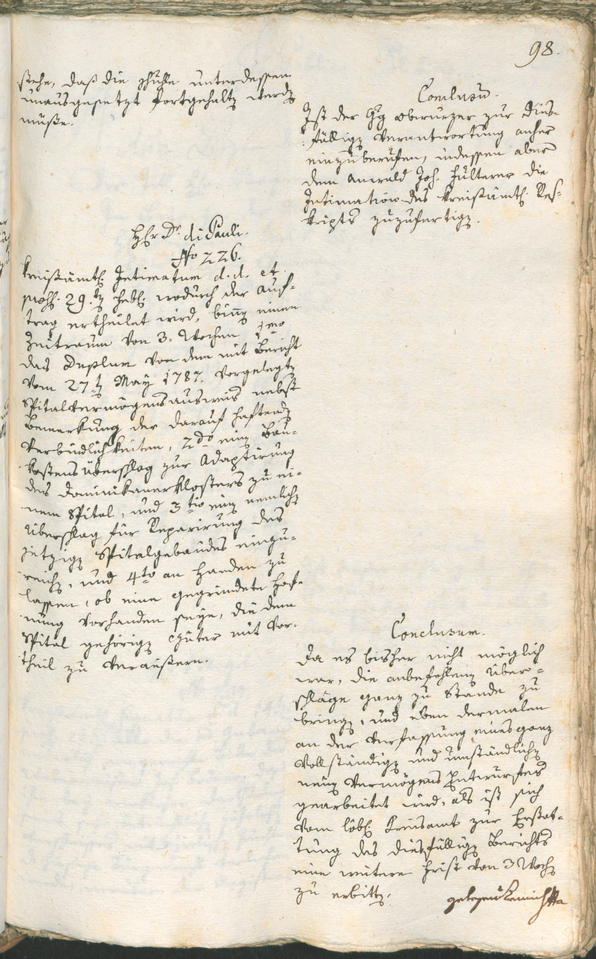 98.
stehe, daß die Schule unterdessen
unausgesetzt fortgehalten werden
müße.
Conclusum.
Ist der Hg Obermesser zur dies-
fälligen Verantwortung anher
einzuberufen, indessen aber
dem Anwald Joh. Hulterer die
Intimation des kreisämtl. Res-
kripts zuzufertigen.
Hr Dr. di Pauli.
No 226.
Kreisämtl. Intimatum d. d. et
praes. 29. hab. wodurch der Auf-
trag ertheilet wird, binnen einem
Zeitraum von 3. Wochen 1mo
das Duplum von dem mit Bericht
vom 27ten May 1787. vorgelegten
Spitalvermögensausweis nebst
Bemerkung der darauf haftenden
Verbindlichkeiten, 2do einen Bau-
kostensüberschlag zur Adaptirung
des Dominikanerklosters zu ei-
nem Spital, und 3tio einen nemlichen
Überschlag für Reparirung des
jetzigen Spitalgebäudes einzu-
reichen, und 4to an Handen zu
lassen, ob eine gegründete Hof-
nung vorhanden seye, die dem
Spital gehörigen Güter mit Vor-
theil zu veräußern.
Conclusum.
Da es bisher nicht möglich
war, die anbefohlenen Über-
schläge ganz zu Stande zu
bringen, und eben dermalen
an der Verfassung eines ganz
vollständigen und umständlichen
neuen Vermögens Entwurfes
gearbeitet wird, als ist sich
vom löbl. Kreisamt zur Erstat-
tung des diesfälligen Berichts
eine weitere Frist von 3 Wochen
zu erbitten.
gelesen